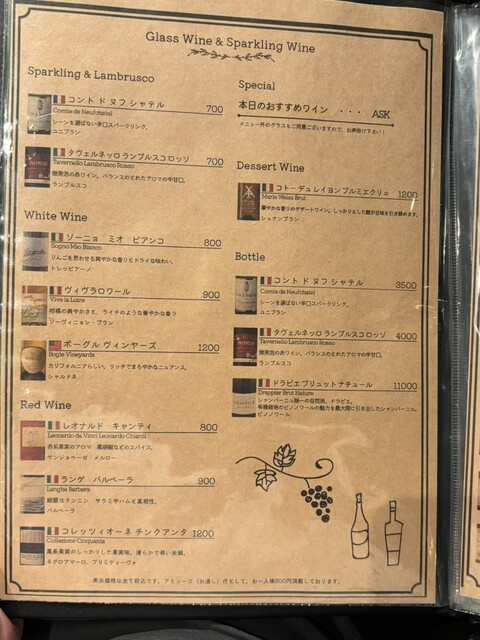 Glass Wine & Sparkling Wine
Sparkling & Lambrusco
コント ド ヌフ シャテル 700
Comte de Neufchatel
シーンを選ばない辛口スパークリング。
ユニブラン
タヴェルネッロ ランブルスコ ロッソ 700
Tavernello Lambrusco Rosso
微発泡の赤ワイン。バランスのとれたアロマの中甘口。
ランブルスコ
White Wine
ソーニョ ミオ ビアンコ 800
Sogno Mio Bianco
りんごを思わせる爽やかな香りとドライな味わい。
トレッビアーノ
ヴィヴラロワール 900
Vive la Loire
柑橘の爽やかさと、ライチのような華やかな香り
ソーヴィニョン・ブラン
ボーグル ヴィンヤーズ 1200
Bogle Vineyards
カリフォルニアらしい、リッチでまろやかなニュアンス。
シャルドネ
Red Wine
レオナルド キャンティ 800
Leonardo da Vinci Leonardo Chianti
赤系果実のアロマ 黒胡椒などのスパイス。
サンジョベーゼ メルロー
ランゲ バルベーラ 900
Langhe Barbera
綺麗なタンニン サラミやハムと好相性。
バルベーラ
コレッツィオーネ チンクアンタ 1200
Collezione Cinquanta
黒系果実のしっかりした果実味。滑らかで長い余韻。
ネグロアマーロ、プリミティーヴォ
Special
本日のおすすめワイン ・・・ ASK
メニュー外のグラスもご用意ございますので、お声掛け下さい!
Dessert Wine
コトー デュ レイヨン プルミエ クリュ 1200
華やかな香りのデザートワイン。しっかりとした酸が甘味を引き締めます。
シュナンブラン
Bottle
コント ド ヌフ シャテル 3500
Comte de Neufchatel
シーンを選ばない辛口スパークリング。
ユニブラン
タヴェルネッロ ランブルスコ ロッソ 4000
Tavernello Lambrusco Rosso
微発泡の赤ワイン。バランスのとれたアロマの中甘口。
ランブルスコ
ドラピエ ブリュット ナチュール 11000
Drappier Brut Nature
シャンパーニュ随一の自然派、ドラピエ。
有機栽培のピノノワールの魅力を最大限に引き出したシャンパーニュ。
ピノノワール
表示価格は全て税込です。アミューズ(お通し)代として、お一人様300円頂戴しております。